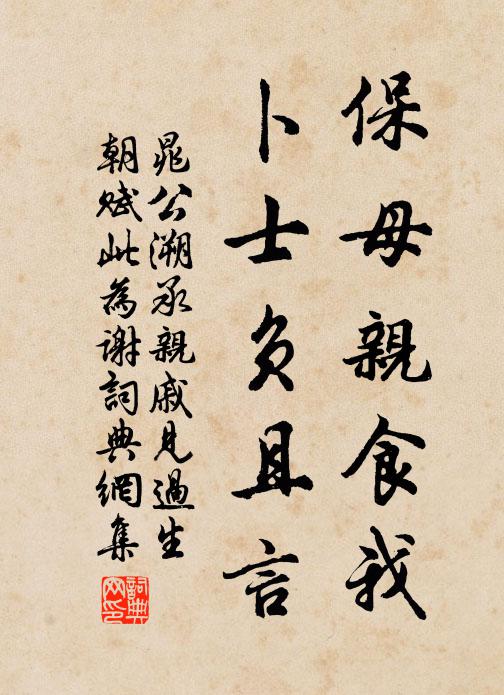 保母親食我
卜士負且言
晁公溯承親戚見過生
朝賦此為謝詞典網集
詞典
網印